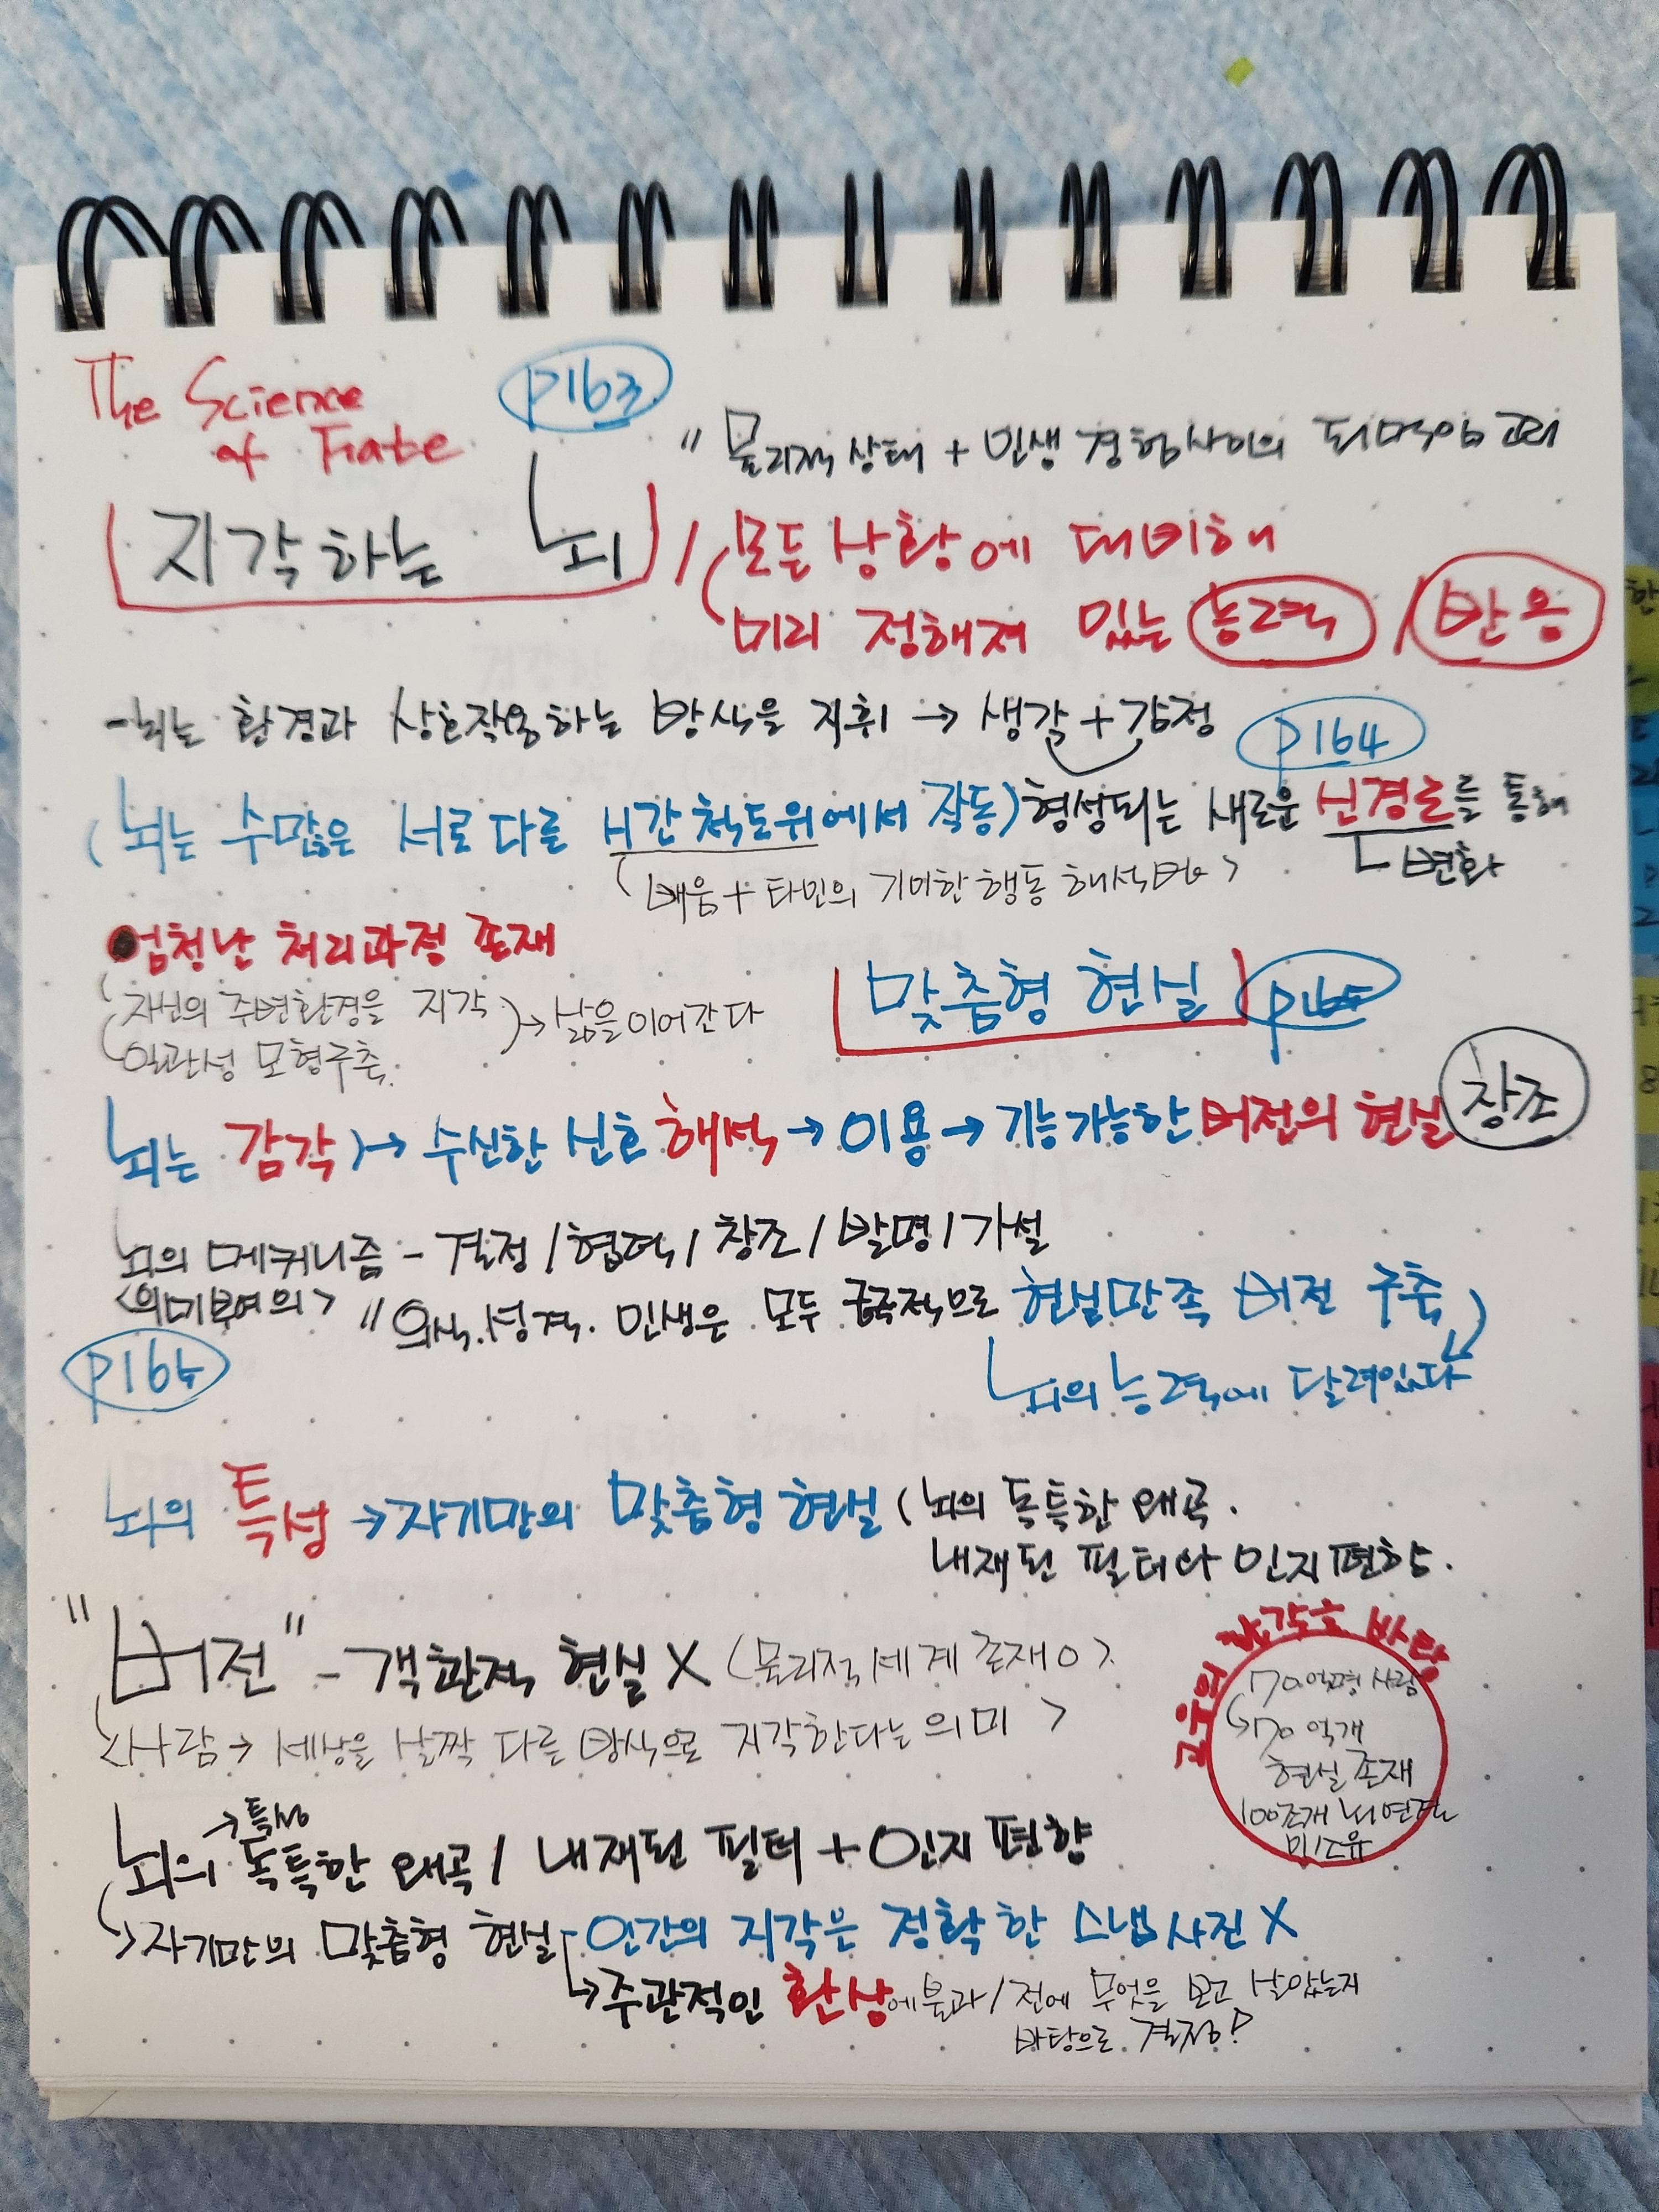 The Science
of Fate
P163
" 물리적 상태 + 인생 경험사이의 되먹임 고리
지각하는 뇌 / 모든 상황에 대비해
미리 정해져 있는 능력 / 반응
- 뇌는 환경과 상호작용하는 방식을 지휘 → 생각 + 감정
P164
(뇌는 수많은 서로 다른 시간 척도위에서 작동) 형성되는 새로운 신경로를 통해
변화
(배움 + 타인의 기이한 행동 해석 >
엄청난 처리과정 존재
자신의 주변환경을 지각
일관성 모형구축.
) → 삶을 이어간다
맞춤형 현실 P165
뇌는 감각 → 수신한 신호 해석 → 이용 → 기능가능한 버전의 현실 창조
뇌의 메커니즘 - 결정 / 협력 / 창조 / 발명 / 가설
<의미부여의> " 의식. 성격. 인생은 모두 궁극적으로 현실만족 버전 구축
뇌의 능력에 달려있다
뇌의 특성 → 자기만의 맞춤형 현실 (뇌의 독특한 왜곡.
내재된 필터와 인지편향.
"버전" - 객관적 현실 X (물리적 세계 존재 O >
<사람 → 세상을 살짝 다른 방식으로 지각한다는 의미 >
고유의 감각을 바탕
70억명 사람
→ 70 억개
현실 존재
100조개 뇌 연결
미소유
→ 특성
뇌의 독특한 왜곡 / 내재된 필터 + 인지 편향
→ 자기만의 맞춤형 현실 - 인간의 지각은 정확한 스냅사진 X
→ 주관적인 환상에 불과 / 전에 무엇을 보고 살았는지
바탕으로 결정!